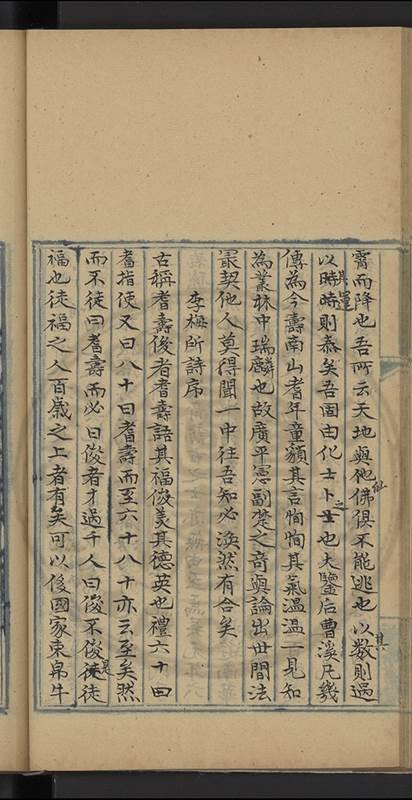 霄而降也吾所云天地與仙佛俱不能逃也以數則遇
以時時則泰矣吾固由化士卜之也大鑒后曹溪凡幾
傳為今壽南山耆年童顏其言恂恂其氣溫溫一見知
為叢林中瑞麟也故廣平憲副楚之奇與論出世間法
最契他人莫得聞一中往吾知必渙然有合矣
李梅所詩序
古稱耆壽俊者耆壽語其福俊美其德英也禮六十曰
耆指使又曰八十曰耆壽而至六十八十亦云至矣然
而不徒曰耆壽而必曰俊者才過千人曰俊不俊是徒
福也徒福之人百歲之上者有矣可以俟國家束帛牛